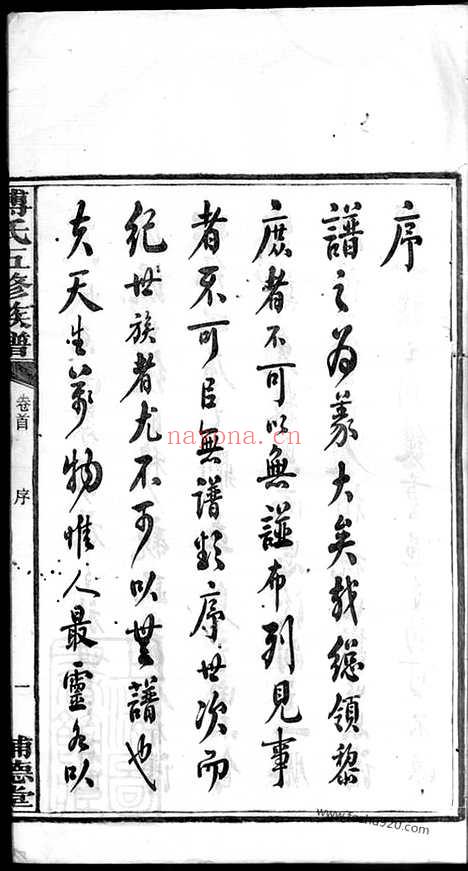 序
譜之為義大矣哉總領黎
庶者不可以無譜布列見事
者不可㠯無譜類序世次而
紀世族者尤不可以無譜也
夫天生萬物惟人最靈所以
傅氏五修族譜
卷首
序
一
補德堂
nayona.cn
www.fozhu920.com